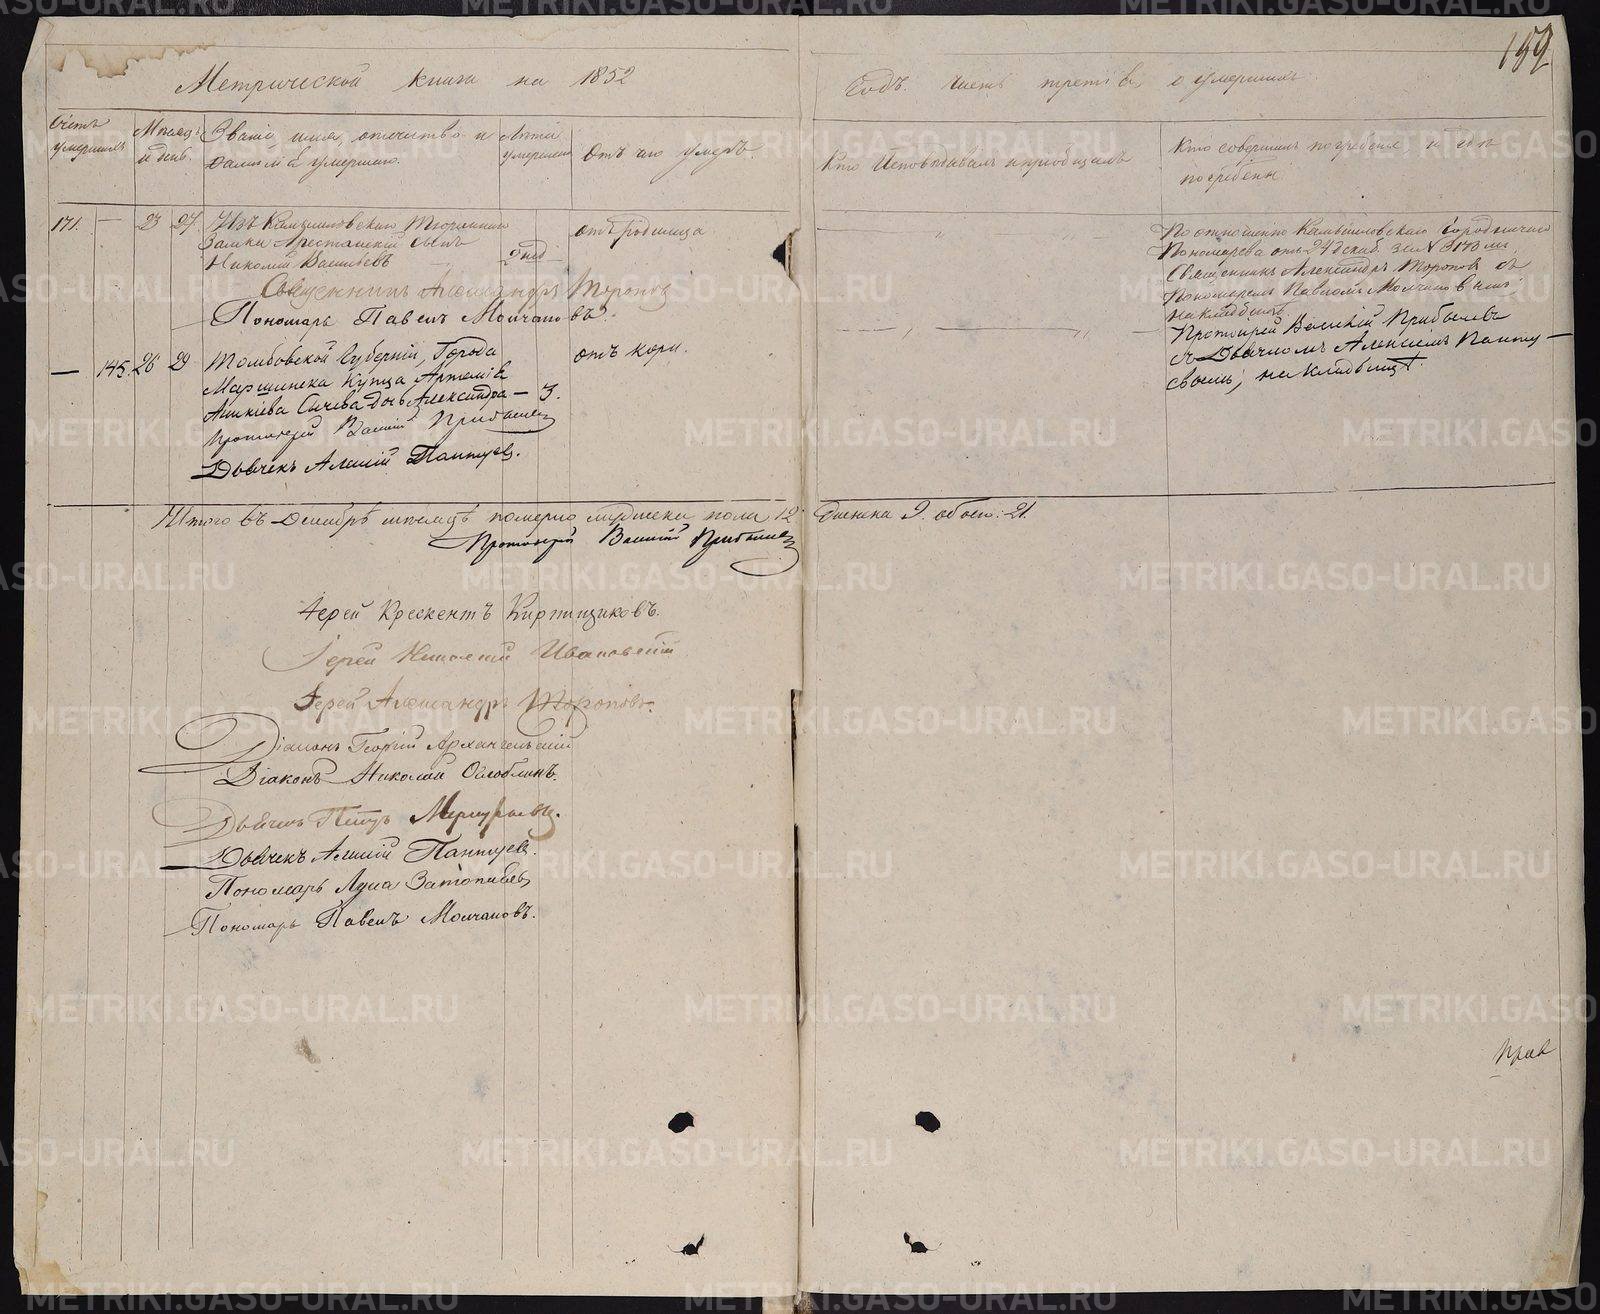 159
Метрической книги на 1852
Годъ. Часть третія, о умершихъ
Счетъ умершихъ
Мѣсяцъ и день.
Званіе, имя, отчество и фамилія умершаго.
Лѣта умершихъ
Отъ чего умеръ.
Кто Исповѣдывалъ и пріобщалъ
Кто совершилъ погребеніе и гдѣ погребены
171. — 23 27
Изъ Камышловскаго Тюремнаго
Замка Арестантскій сынъ
Николай Васильевъ
2 нед
отъ родимца
По отношенію Камышловскаго Городничаго
Пономарева отъ 24 декаб. за № 3173 мъ
Священникъ Александръ Торопов съ
Пономаремъ Павломъ Молчановымъ.
на кладбищѣ
Священникъ Александръ Торопов
Пономарь Павелъ Молчановъ.
— 145. 26 29
Томбовской Губерніи, Города
Моршанска Купца Артемія
Сычева дочь Александра — 3.
отъ кори.
Протоіерей Василій Прибылевъ
съ Дьячкомъ Алексіемъ Панту-
евымъ, на кладбищѣ.
Протоіерей Василій Прибылев
Дьячекъ Алексій Пантуев.
Итого въ Декабрѣ мѣсяцѣ померло мужеска пола 12 женска 9. обоег: 21.
Протоіерей Василій Прибылев
Іерей Крескентъ Кирпищиковъ.
Іерей Николай Ивановскій
Іерей Александръ Торопов.
Діаконъ Георгій Архангельскій
Діаконъ Николай Оглоблинъ.
Дьячекъ Петръ Меркурьевъ.
Дьячекъ Алексій Пантуев.
Пономарь Лука Затопляев
Пономарь Павелъ Молчановъ.
METRIKI.GASO-URAL.RU